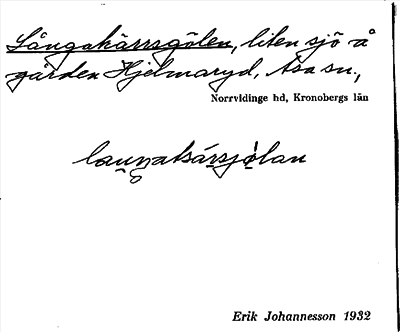 Långakärrsgölen, liten sjö å
gården Hjelmaryd, Asa sn.,
Norrvidinge hd, Kronobergs län
Erik Johannesson 1932